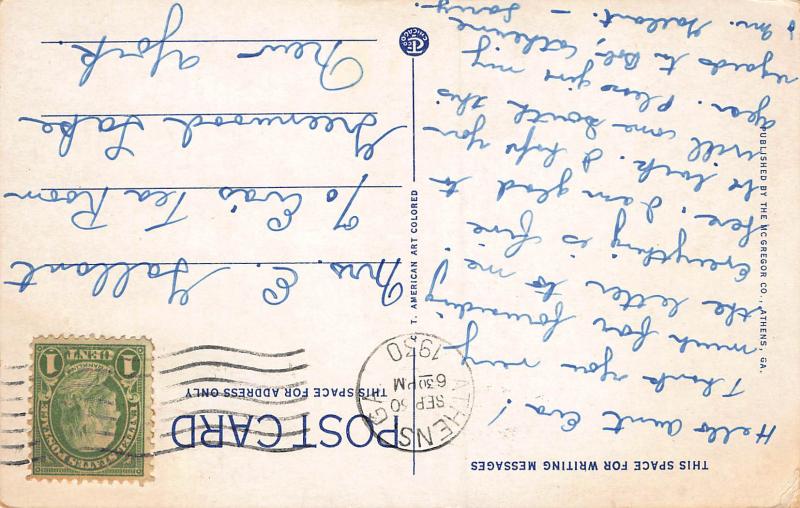 THIS SPACE FOR WRITING MESSAGES
Hello Aunt Eva!
Thank you very
much for forwarding
the letter to me!
Everything is fine
here. I am glad to
be back. I hope you
will come South this
year. Please give my
regards to Bob, Catherine
& Mr. Gallant. —
Sarry.
PUBLISHED BY THE MCGREGOR CO., ATHENS, GA.
C. T. AMERICAN ART COLORED
CT CO CHICAGO
POST CARD
THIS SPACE FOR ADDRESS ONLY
ATHENS GA.
SEP 30
6 30 PM
1930
UNITED STATES POSTAGE
FRANKLIN
1 CENT 1
Mrs. E. Gallant
℅ Eva's Tea Room
Greenwood Lake
New York.